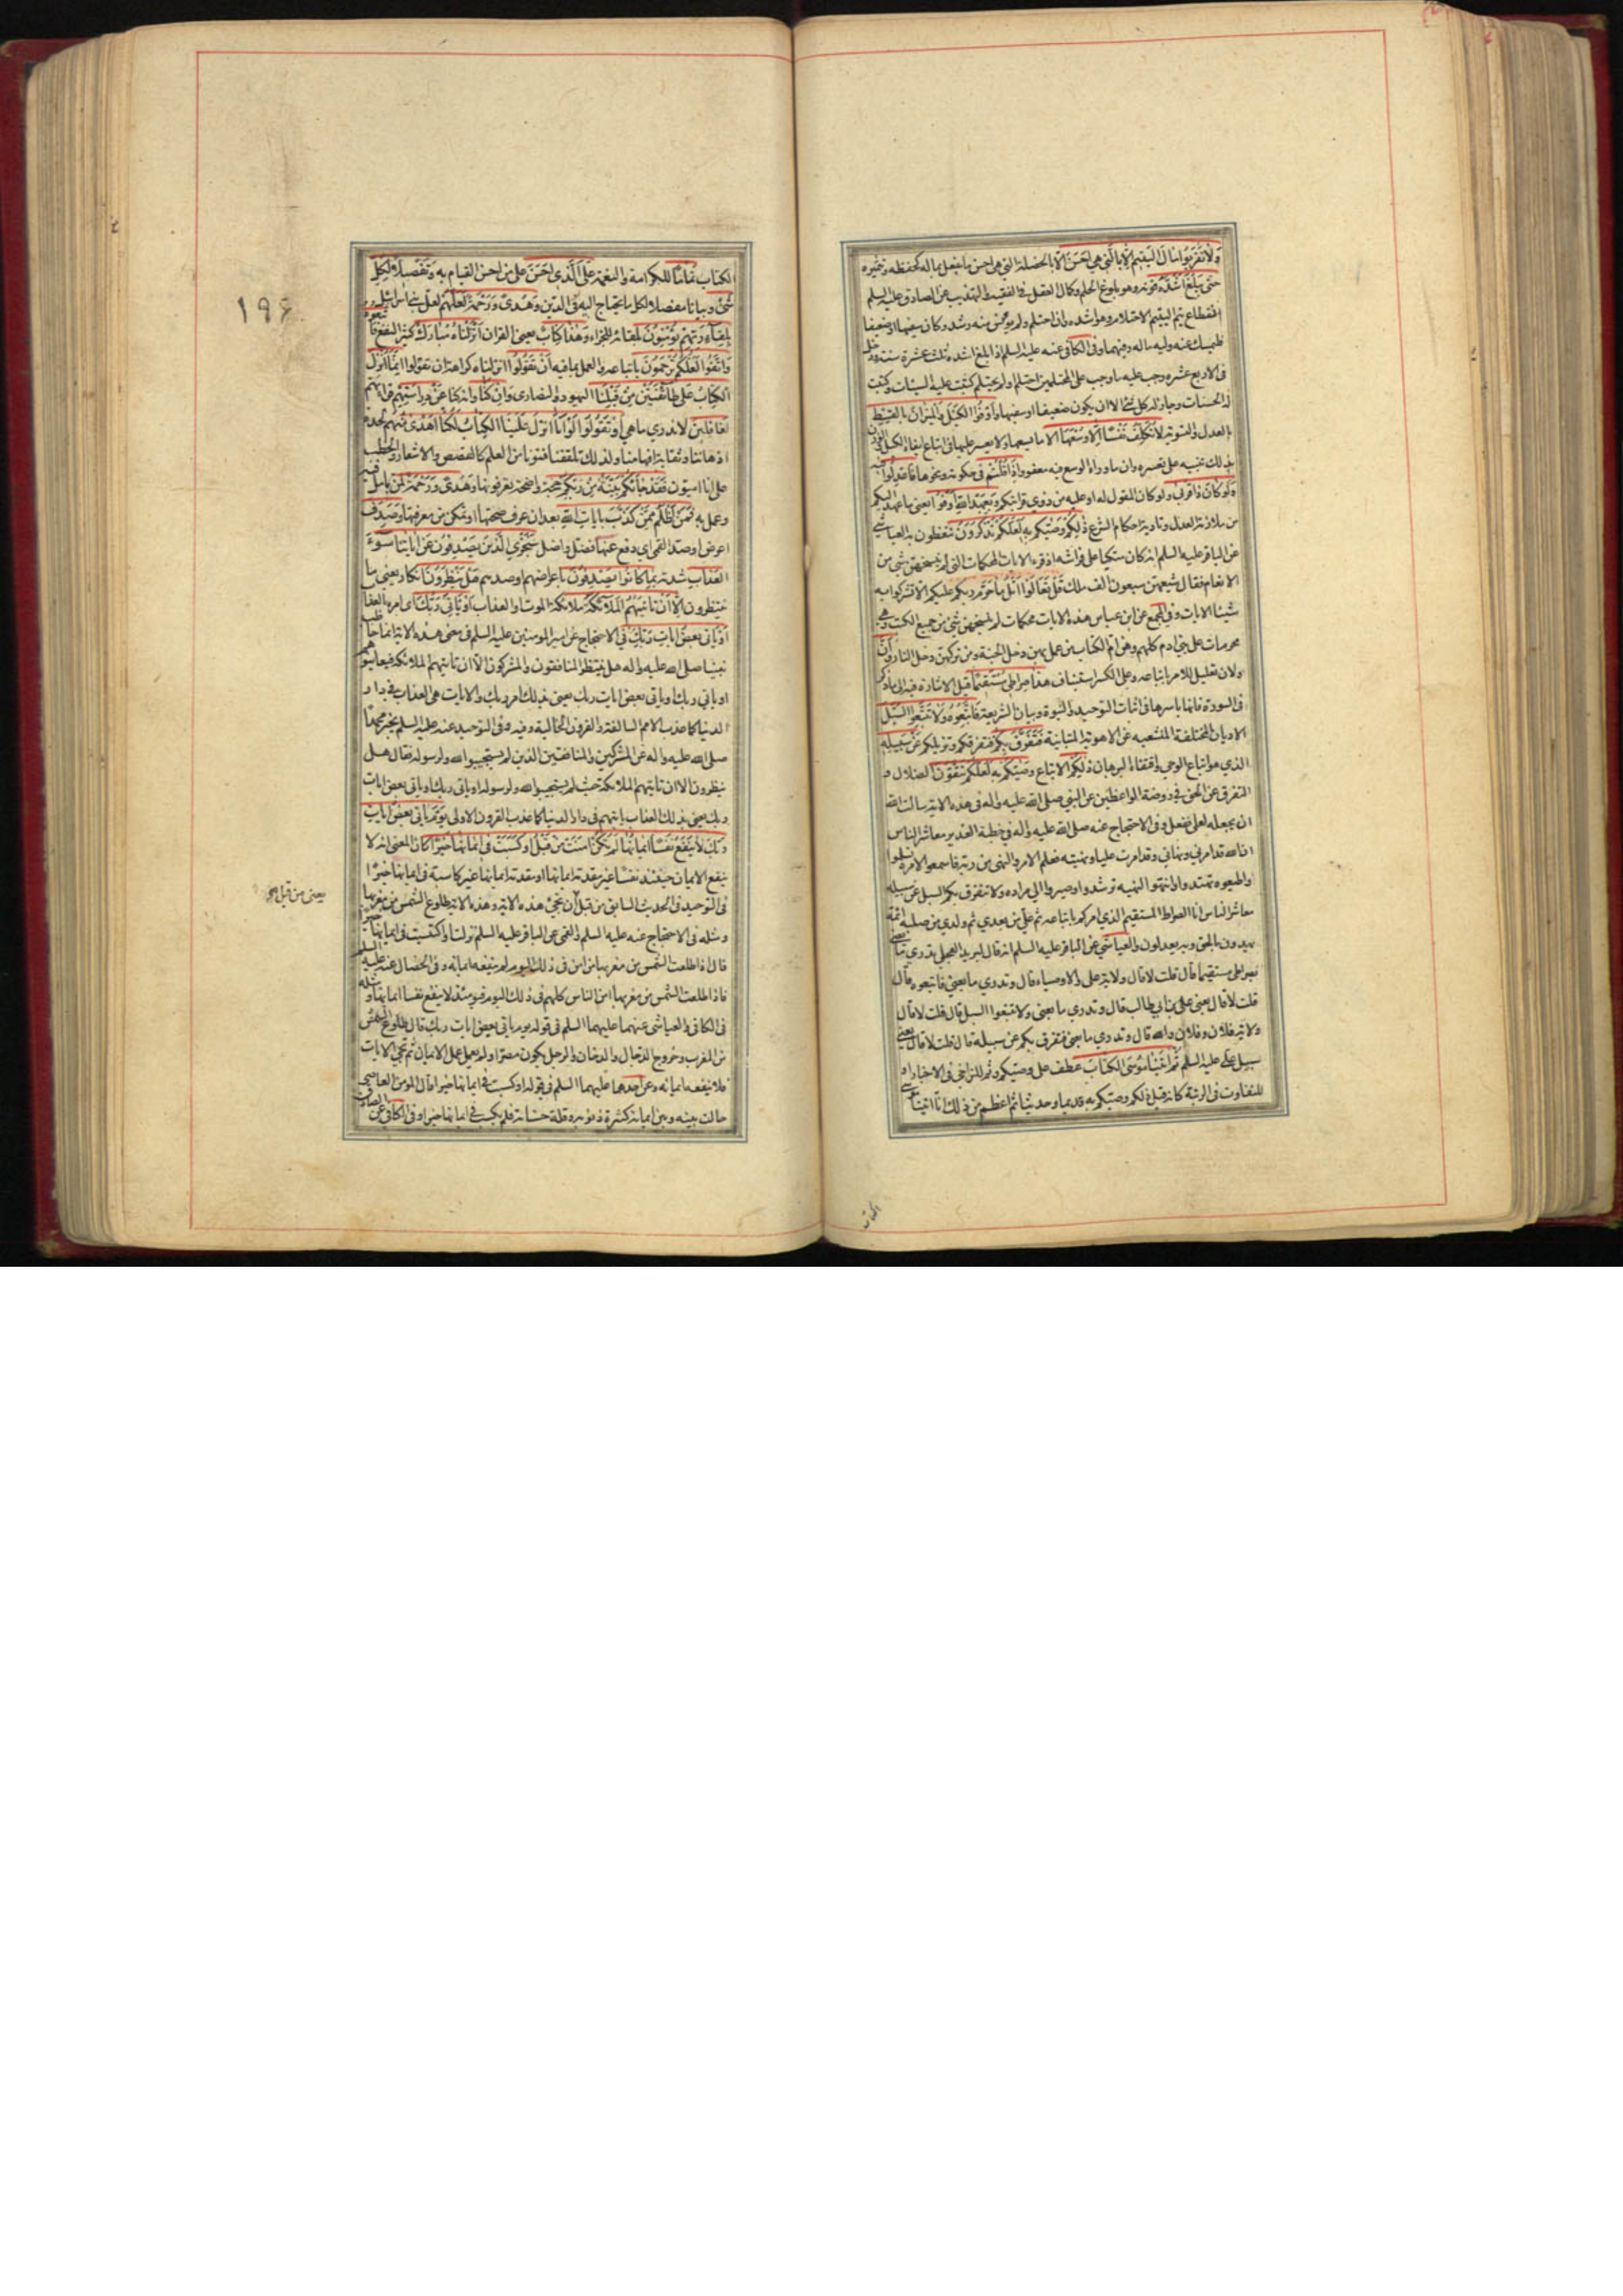 وَلَا تَقْرَبُوا مَالَ الْيَتِيمِ إِلَّا بِالَّتِي هِيَ أَحْسَنُ الا بالخصلة التي هي احسن ما يفعل بماله كحفظه وتثميره
حَتَّى يَبْلُغَ أَشُدَّهُ قوته وهو بلوغ الحلم وكمال العقل في الفقيه والتهذيب عن الصادق عليه السلم
انقطاع يتم اليتيم الاحتلام وهو اشده وان احتلم ولم يونس منه رشد وكان سفيها او ضعيفا
فليمسك عنه وليه ماله وفيهما وفي الكافي عنه عليه السلم اذا بلغ اشده ثلث عشرة سنة ودخل
في الاربع عشره وجب عليه ما وجب على المحتلمين احتلم او لم يحتلم كتبت عليه السيئات وكتبت
له الحسنات وجاز له كل شئ الا ان يكون ضعيفا او سفيها وَأَوْفُوا الْكَيْلَ وَالْمِيزَانَ بِالْقِسْطِ
بالعدل والتسوية لَا نُكَلِّفُ نَفْسًا إِلَّا وُسْعَهَا الا ما يسعها ولا يعسر عليها في اتباع ايفاء الكيل والوزن
بذلك تنبيه على تعسره وان ما وراء الوسع فيه معفو وَإِذَا قُلْتُمْ في حكومة ونحوها فَاعْدِلُوا فيه
وَلَوْ كَانَ ذَا قُرْبَى ولو كان المقول له او عليه من ذوي قرابتكم وَبِعَهْدِ اللَّهِ أَوْفُوا يعني ما عهد اليكم
من ملازمة العدل وتادية احكام الشرع ذَلِكُمْ وَصَّيكُمْ بِهِ لَعَلَّكُمْ تَذَكَّرُونَ تتعظون به العياشي
عن الباقر عليه السلم انه كان متكيا على فراشه اذ قرء الايات المحكمات التي لم ينسخهن شئ من
الانعام فقال شيعهن سبعون الف ملك قُلْ تَعَالَوْا أَتْلُ مَا حَرَّمَ ربكم عليكم الا تشركوا به
شيئا الايات وفي المجمع عن ابن عباس هذه الايات محكمات لم ينسخهن شئ من جميع الكتب وهي
محرمات على بني ادم كلهم وهن ام الكتاب من عمل بهن دخل الجنة ومن تركهن دخل النار وَأَنَّ
ولان تعليل للامر باتباعه وعلى الكسر استيناف هَذَا صِرَاطِي مُسْتَقِيمًا قيل الاشارة فيه الى ما ذكر
في السورة فانها باسرها في اثبات التوحيد والنبوة وبيان الشريعة فَاتَّبِعُوهُ وَلَا تَتَّبِعُوا السُّبُلَ
الاديان المختلفة المتشعبه عن الاهوية المتباينة فَتَفَرَّقَ بِكُمْ فتفرقكم وتزيلكم عَنْ سَبِيلِهِ
الذي هو اتباع الوحي واقتفاء البرهان ذَلِكُمْ الاتباع وَصَّيكُمْ بِهِ لَعَلَّكُمْ تَتَّقُونَ الضلال و
التفرق عن الحق في روضة الواعظين عن النبي صلى الله عليه واله في هذه الاية سالت الله
ان يجعلها لعلي ففعل وفي الاحتجاج عنه صلى الله عليه واله في خطبة الغدير معاشر الناس
ان الله قد امرني ونهاني وقد امرت عليا ونهيته فعلم الامر والنهي من ربه فاسمعوا لامره تسلموا
واطيعوه تهتدوا وانتهوا لنهيه ترشدوا وصيروا الى مراده ولا تتفرق بكم السبل عن سبيله
معاشر الناس انا الصراط المستقيم الذي امركم باتباعه ثم علي من بعدي ثم ولدي من صلبه ائمة
يهدون بالحق وبه يعدلون والعياشي عن الباقر عليه السلم انه قال لبريد العجلي تدري ما يعني
بصراطي مستقيما قال قلت لا قال ولاية علي والاوصياء قال وتدري ما يعني فاتبعوه قال
قلت لا قال يعني علي بن ابي طالب قال وتدري ما يعني ولا تتبعوا السبل قال قلت لا قال
ولاية فلان وفلان والله قال وتدري ما يعني فتفرق بكم عن سبيله قال قلت لا قال يعني
سبيل علي عليه السلم ثُمَّ آتَيْنَا مُوسَى الْكِتَابَ عطف على وصيكم وثم للتراخي في الاخبار او
للتفاوت في الرتبة كانه قيل ذلكم وصيكم به قديما وحديثا ثم اعظم من ذلك انا اتينا موسى
الكتاب
١٩٤
الكتاب تَمَامًا للكرامة والنعمة عَلَى الَّذِي أَحْسَنَ على من احسن القيام به وَتَفْصِيلًا لِكُلِّ
شَيْءٍ وبيانا مفصلا لكل ما يحتاج اليه في الدين وَهُدًى وَرَحْمَةً لَعَلَّهُمْ لعل بني اسرائيل
بِلِقَاءِ رَبِّهِمْ يُؤْمِنُونَ بلقائه للجزاء وَهَذَا كِتَابٌ يعني القران أَنْزَلْنَاهُ مُبَارَكٌ كثير النفع فَاتَّبِعُوهُ
وَاتَّقُوا لَعَلَّكُمْ تُرْحَمُونَ باتباعه والعمل بما فيه أَنْ تَقُولُوا انزلناه كراهة ان تقولوا إِنَّمَا أُنْزِلَ
الْكِتَابُ عَلَى طَائِفَتَيْنِ مِنْ قَبْلِنَا اليهود والنصارى وَإِنْ كُنَّا وانه كنا عَنْ دِرَاسَتِهِمْ قرائتهم
لَغَافِلِينَ لا ندري ما هي أَوْ تَقُولُوا لَوْ أَنَّا أُنْزِلَ عَلَيْنَا الْكِتَابُ لَكُنَّا أَهْدَى مِنْهُمْ لحدة
اذهاننا وثقابة افهامنا ولذلك تلقفنا فنونا من العلم كالقصص والاشعار والخطب
على انا اميون فَقَدْ جَاءَكُمْ بَيِّنَةٌ مِنْ رَبِّكُمْ حجة واضحة تعرفونها وَهُدًى وَرَحْمَةٌ لمن تامل فيه
وعمل به فَمَنْ أَظْلَمُ مِمَّنْ كَذَّبَ بِآيَاتِ اللَّهِ بعد ان عرف صحتها او تمكن من معرفتها وَصَدَفَ
اعرض او صد القمي اي دفع عَنْهَا فضل واضل سَنَجْزِي الَّذِينَ يَصْدِفُونَ عَنْ آيَاتِنَا سُوءَ
الْعَذَابِ شدته بِمَا كَانُوا يَصْدِفُونَ باعراضهم او صدهم هَلْ يَنْظُرُونَ انكار يعني ما
ينتظرون إِلَّا أَنْ تَأْتِيَهُمُ الْمَلَائِكَةُ ملائكة الموت او العذاب أَوْ يَأْتِيَ رَبُّكَ اي امره بالعذاب
أَوْ يَأْتِيَ بَعْضُ آيَاتِ رَبِّكَ في الاحتجاج عن امير المومنين عليه السلم في معنى هذه الاية انما خاطب
نبينا صلى الله عليه واله هل ينتظر المنافقون والمشركون الا ان تاتيهم الملائكة فيعاينوهم
او ياتي ربك او ياتي بعض ايات ربك يعني بذلك امر ربك والايات هي العذاب في دار
الدنيا كما عذب الامم السالفة والقرون الخالية وفيه وفي التوحيد عنه عليه السلم يخبر محمدا
صلى الله عليه واله عن المشركين والمنافقين الذين لم يستجيبوا لله ولرسوله فقال هل
ينظرون الا ان تاتيهم الملائكة حيث لم يستجيبوا لله ولرسوله او ياتي ربك او ياتي بعض ايات
ربك يعني بذلك العذاب ياتيهم في دار الدنيا كما عذب القرون الاولى يَوْمَ يَأْتِي بَعْضُ آيَاتِ
رَبِّكَ لَا يَنْفَعُ نَفْسًا إِيمَانُهَا لَمْ تَكُنْ آمَنَتْ مِنْ قَبْلُ أَوْ كَسَبَتْ فِي إِيمَانِهَا خَيْرًا كان المعنى انه لا
ينفع الايمان حينئذ نفسا غير مقدمة ايمانها او مقدمة ايمانها غير كاسبة في ايمانها خيرا
في التوحيد في الحديث السابق من قبل ان تجئ هذه الاية وهذه الاية طلوع الشمس من مغربها
يعني من قبل هو
ومثله في الاحتجاج عنه عليه السلم والقمي عن الباقر عليه السلم نزلت او اكتسبت في ايمانها خيرا
قال اذا طلعت الشمس من مغربها من امن في ذلك اليوم لم ينفعه ايمانه وفي الخصال عنه عليه السلم
فاذا طلعت الشمس من مغربها امن الناس كلهم في ذلك اليوم فيومئذ لا ينفع نفسا ايمانها ومثله
في الكافي والعياشي عنهما عليهما السلم في قوله يوم ياتي بعض ايات ربك قال طلوع الشمس
من المغرب وخروج الدجال والدخان والرجل يكون مصرا ولم يعمل عمل الايمان ثم تجئ الايات
فلا ينفعه ايمانه وعن احدهما عليهما السلم في قوله او كسبت في ايمانها خيرا قال المومن العاصي
حالت بينه وبين ايمانه كثرة ذنوبه وقلة حسناته فلم يكسب في ايمانه خيرا وفي الكافي عن الصادق